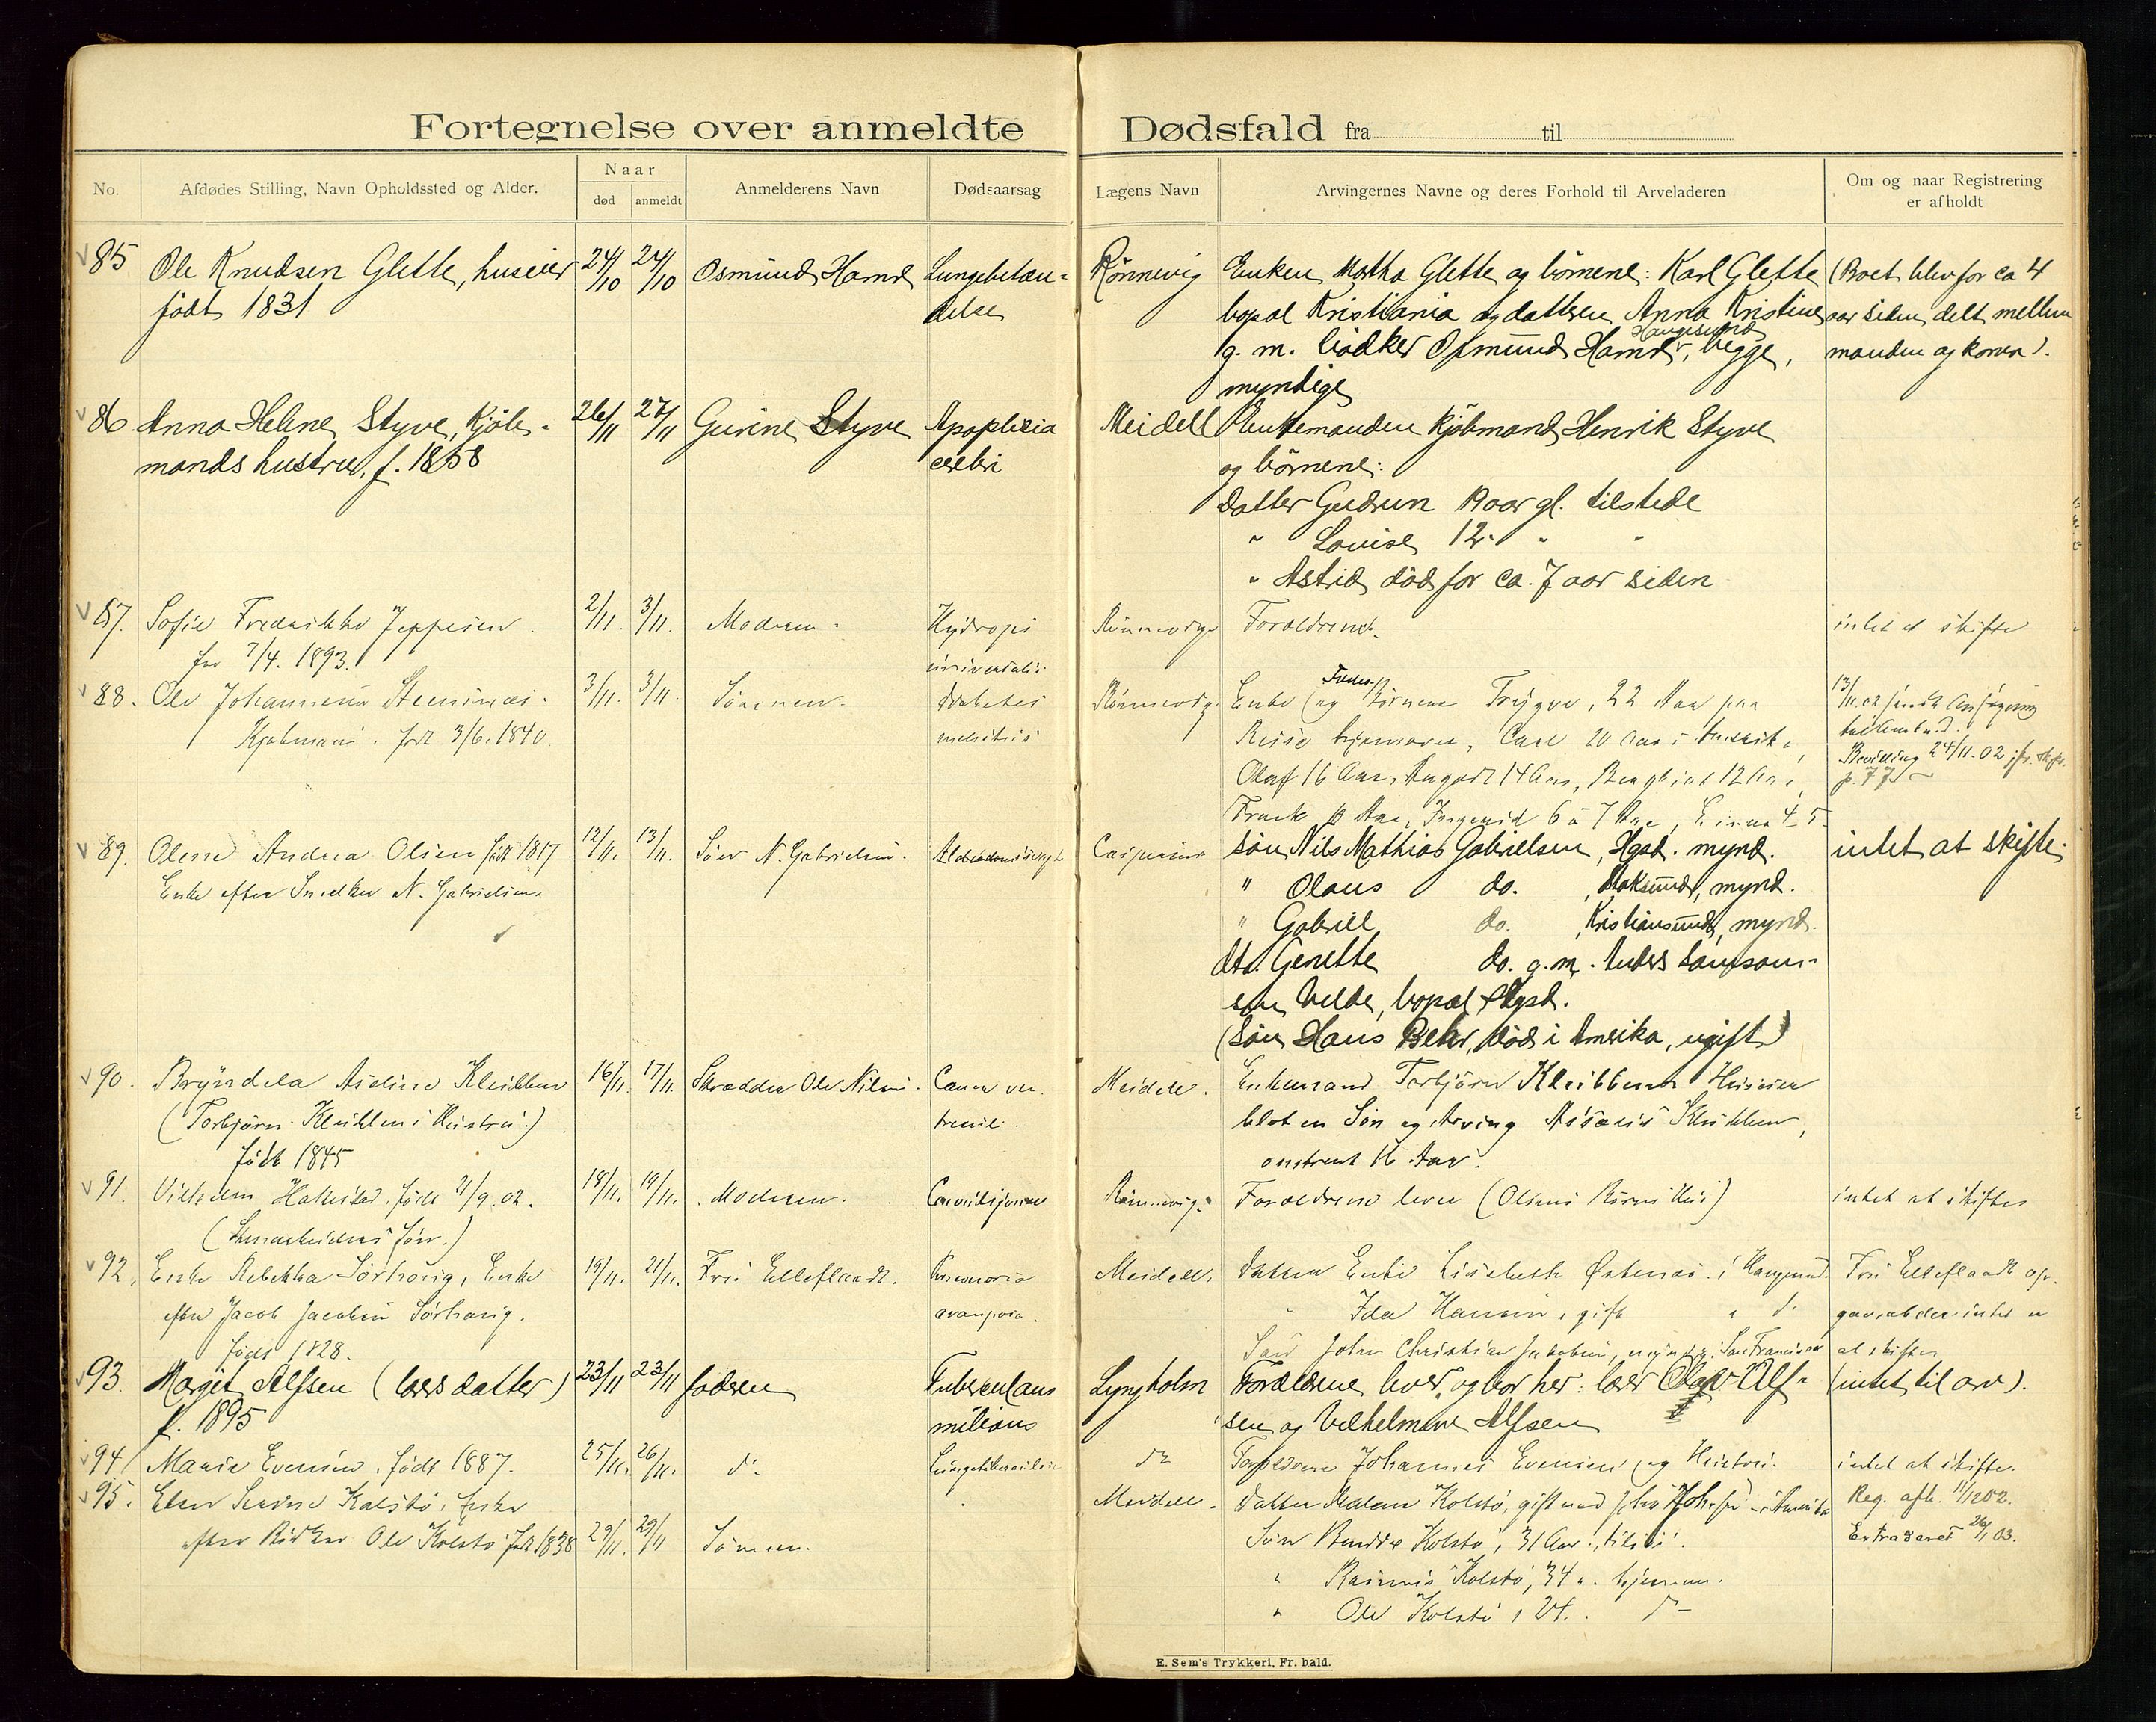 Fortegnelse over anmeldte Dødsfald fra til
No.
Afdødes Stilling, Navn Opholdssted og Alder.
Naar
død
anmeldt
Anmelderens Navn
Dødsaarsag
Lægens Navn
Arvingernes Navne og deres Forhold til Arveladeren
Om og naar Registrering
er afholdt
85 Ole Knudsen Glette, huseier 24/10 24/10 Osmund Hamre Lungebetæn- Rönnevig Enken Martha Glette og börnene: Karl Glette (Boet blev for ca 4
født 1831 delse bopæl Kristiania og datteren Anna Kristine aar siden delt mellem
Haugesund
g. m. bödker Osmund Hamre, begge, manden og konen).
myndige
86 Anna Helene Styve, kjöb- 26/11 27/11 Gurine Styve Apoplexia Meidell Enkemanden Kjöbmand Henrik Styve
mands hustru, f. 1858 cerebri og börnene:
datter Gudrun aar gl. tilstede
" Louise 12 " "
" Astrid död for ca. 7 aar siden
87. Sofie Fredrikke Jeppesen 2/11. 3/11. Moderen. Hydrops Rönnevig Forældrene. intet at skifte
7/4. 1893. universalis
88. Ole Johannesen 3/11. 3/11. Sönnen. Diabetes Rönnevig Enke og Börnene Trygve, 22 Aar paa
Kjøbmand. født 3/6. 1840. mellitus Reise hjemover, Carl 20 Aar i Amerika,
Olaf 16 Aar, August 14 Aar, 12 Aar,
Bevilling 24/11-02
p. 77
Aar, Ingerid 6 à 7 Aar, 4-5
89. Olene Andrea Olsen født 1817 12/11. 13/11. Sön N. Gabrielsen. Casperssen Sön Nils Mathias Gabrielsen, Hgsd. mynd. intet at skifte.
Enke efter Snedker N. Gabrielsen. " Olaus do. , mynd.
" Gabriel do. , Kristiansund, mynd.
dtr. Genette do. g.m. Anders Samson-
sen Velde, bopæl Hgsd.
(Sön Hans Peter, död i Amerika, ugift)
90. Bryndela Aseline Kleikken 16/11. 17/11. Skrædder Ole Nilsen. Cancer ven- Meidell. Enkemand Torbjörn Kleikken Huseier
(Torbjörn Kleikkens Hustru) triculi. blot en Sön og Arving Kleikken,
født 1845 omtrent 16 Aar.
91. Vilhelm Hakestad. født 21/9.02. 18/11. 19/11. Moderen. Convulsjoner Rönnevig. Forældrene lever (Olsens Hus) intet at skiftes
(Stenarbeiders Sön.)
92. Enke Rebekka Sörhaug, Enke 19/11. 21/11. Fru Elleflaadt. Pneumonia Meidell. Datter Enke Lisebeth Östensö i Haugesund. Fru Elleflaadt op-
efter Jacob Jacobsen Sörhaug. Ida Hansen, gift " do gav, at der intet er
født 1828. Sön John Christian Jakobsen, San Francisco at skifte
93. Margit Alfsen (lærs datter) 23/11 23/11 faderen Tuberculaus Lyngholm Forældrene lever og bor her: lærer Olav Alf- (intet til arv).
f. 1895 miliaris sen og Vilhelmine Alfsen
94 Marie Evensen. født 1887. 25/11. 26/11. do. Lungetuberculose do Forældrene Johannes Evensen og Hustru. intet at skifte.
95. Kolstö, Enke Meidell. Datter Malene Kolstö, gift med John i Amerika Reg. afh. 1/12 02.
efter Bödker Ole Kolstö født 1838 29/11. 29/11 Sönnen. Sön Kolstö, 31 Aar, tilsjös. Extraderet 26/1 03.
" Rasmus Kolstö, 34 " hjemme.
" Ole Kolstö, 24. do
E. Sem's Trykkeri, Fr. hald.